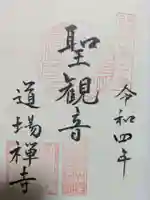 令和四年
聖観音
道場禅寺